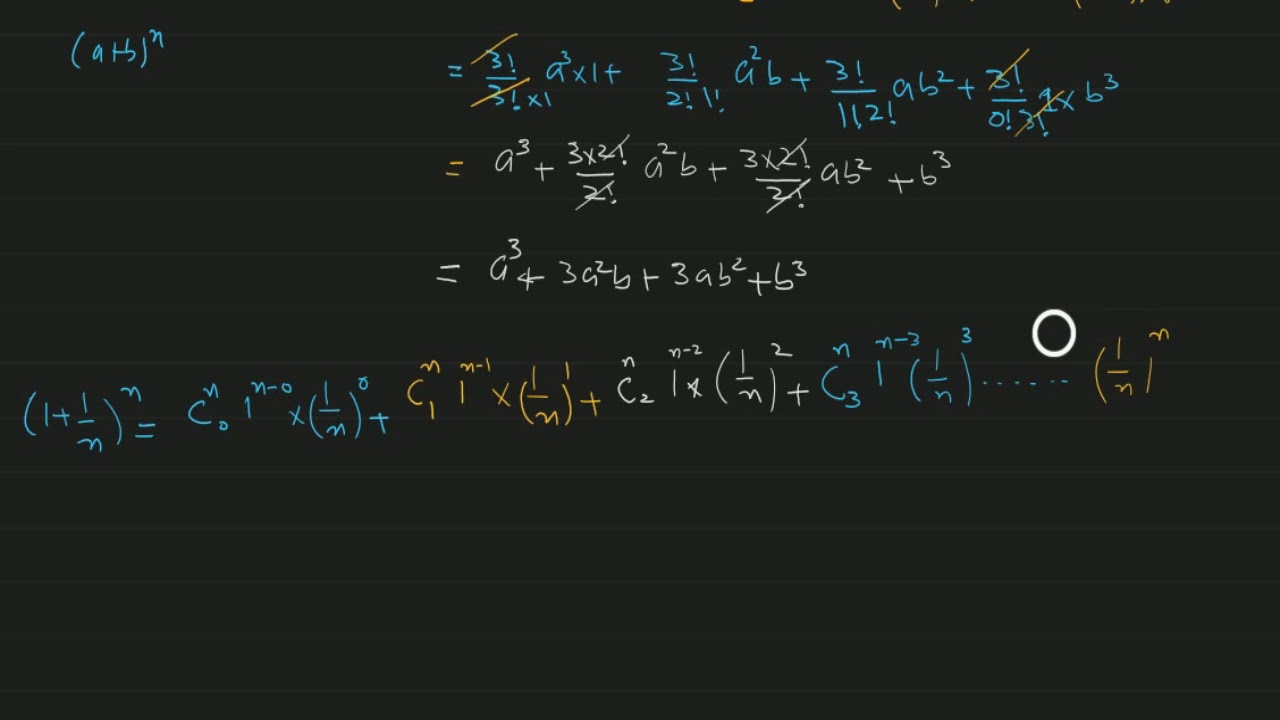 (a+b)^n
= 3!/3!×1 a³×1+ 3!/2!1! a²b + 3!/1!,2! ab² + 3!/0!3! 1× b³
= a³ + 3×2!/2! a²b + 3×2!/2! ab² + b³
= a³ + 3a²b + 3ab² + b³
(1+1/n)^n = C₀^n 1^(n-0) × (1/n)^0 + C₁^n 1^(n-1) × (1/n)^1 + C₂^n 1^(n-2) × (1/n)^2 + C₃^n 1^(n-3) (1/n)^3 ...... (1/n)^n